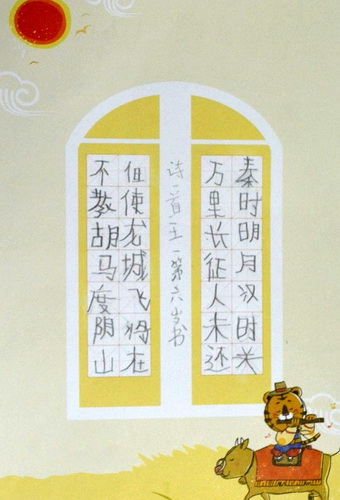 秦时明月汉时关
万里长征人未还
但使龙城飞将在
不教胡马度阴山
诗一首王一第六岁书